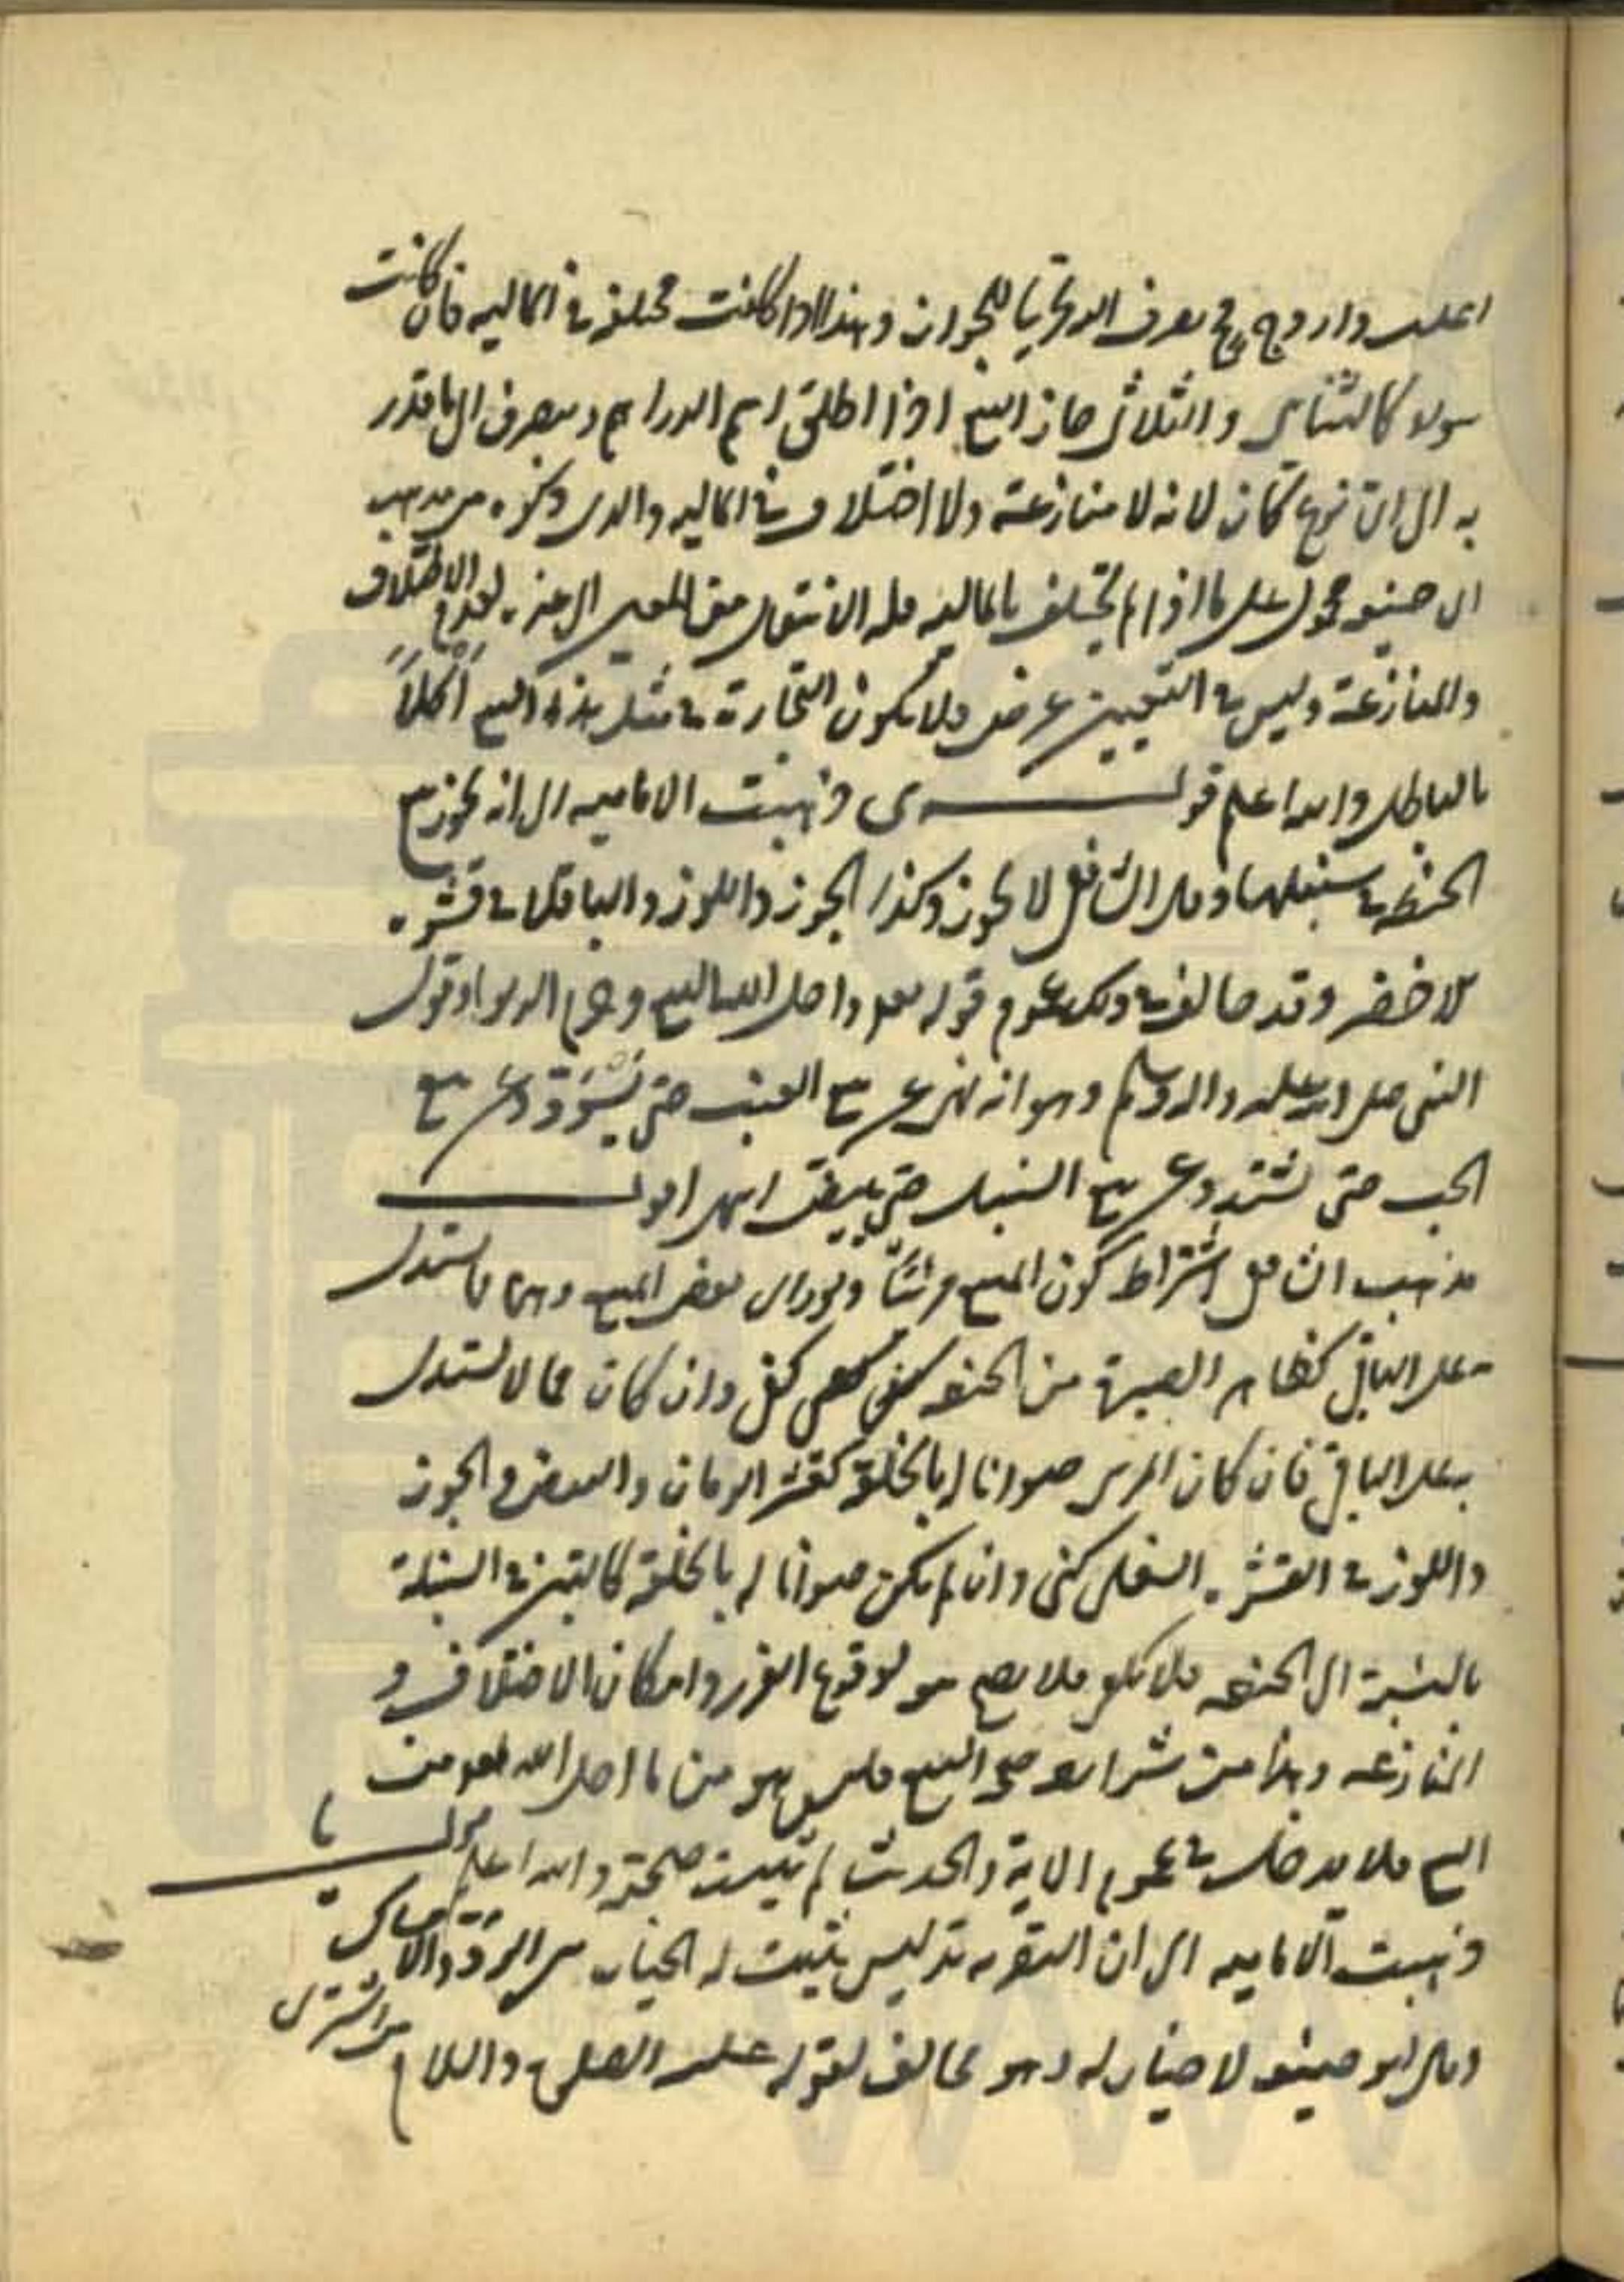 اغلب واروج فح يصرف اليه تحريا للجواز وهذا اذا كانت مختلفة في المالية فان كانت
سواء كالثنائي والثلاثي جاز البيع اذا اطلق اسم الدراهم وينصرف الى ما قدر
به الى اي نوع كان لانه لا منازعة ولا اختلاف في المالية والذي ذكره من مذهب
ابي حنيفة محمول على ما اذا لم تختلف بالمالية فله الانتقال من المعين الى غيره لعدم الاختلاف
والمنازعة وليس في التعيين غرض فلا يكون التجارة في مثل هذا البيع اكلاً
بالباطل والله اعلم قولــه ى ذهبت الامامية الى انه يجوز بيع
الحنطة في سنبلها وقال الشافعي لا يجوز وكذا الجوز واللوز والباقلا في قشره
الاخضر وقد خالف في ذلك عموم قوله تعالى واحل الله البيع وحرم الربوا وقول
النبي صلى الله عليه واله وسلم وهو انه نهى عن بيع العنب حتى يسوَدّ وعن بيع
الحب حتى يشتد وعن بيع السنبل حتى يبيض انتهى اقول
مذهب الشافعي اشتراط كون المبيع مرئياً ولو راى بعض المبيع وهو مما يستدل
به على الباقي كظاهر الصبرة من الحنطة كفى وان كان مما لا يستدل
به على الباقي فان كان المرئي صوانا له بالخلقة كقشر الرمان والبيض والجوز
واللوز في القشرة السفلى كفى وان لم يكن صوانا له بالخلقة كالتبن في السنبلة
بالنسبة الى الحنطة فلا يكفي فلا يصح بيعه لوقوع الغرر وامكان الاختلاف و
المنازعة وهذا من شرايط صحة البيع فليس هو من ما احل الله تعالى من
البيع فلا يدخل في عموم الاية والحديث لم يثبت صحته والله اعلم قولــه يا
ذهبت الامامية الى ان التصرية تدليس يثبت له الخيار بين الرد والامساك
وقال ابو حنيفة لا خيار له وهو مخالف لقوله عليه الصلوة والسلام من اشترى